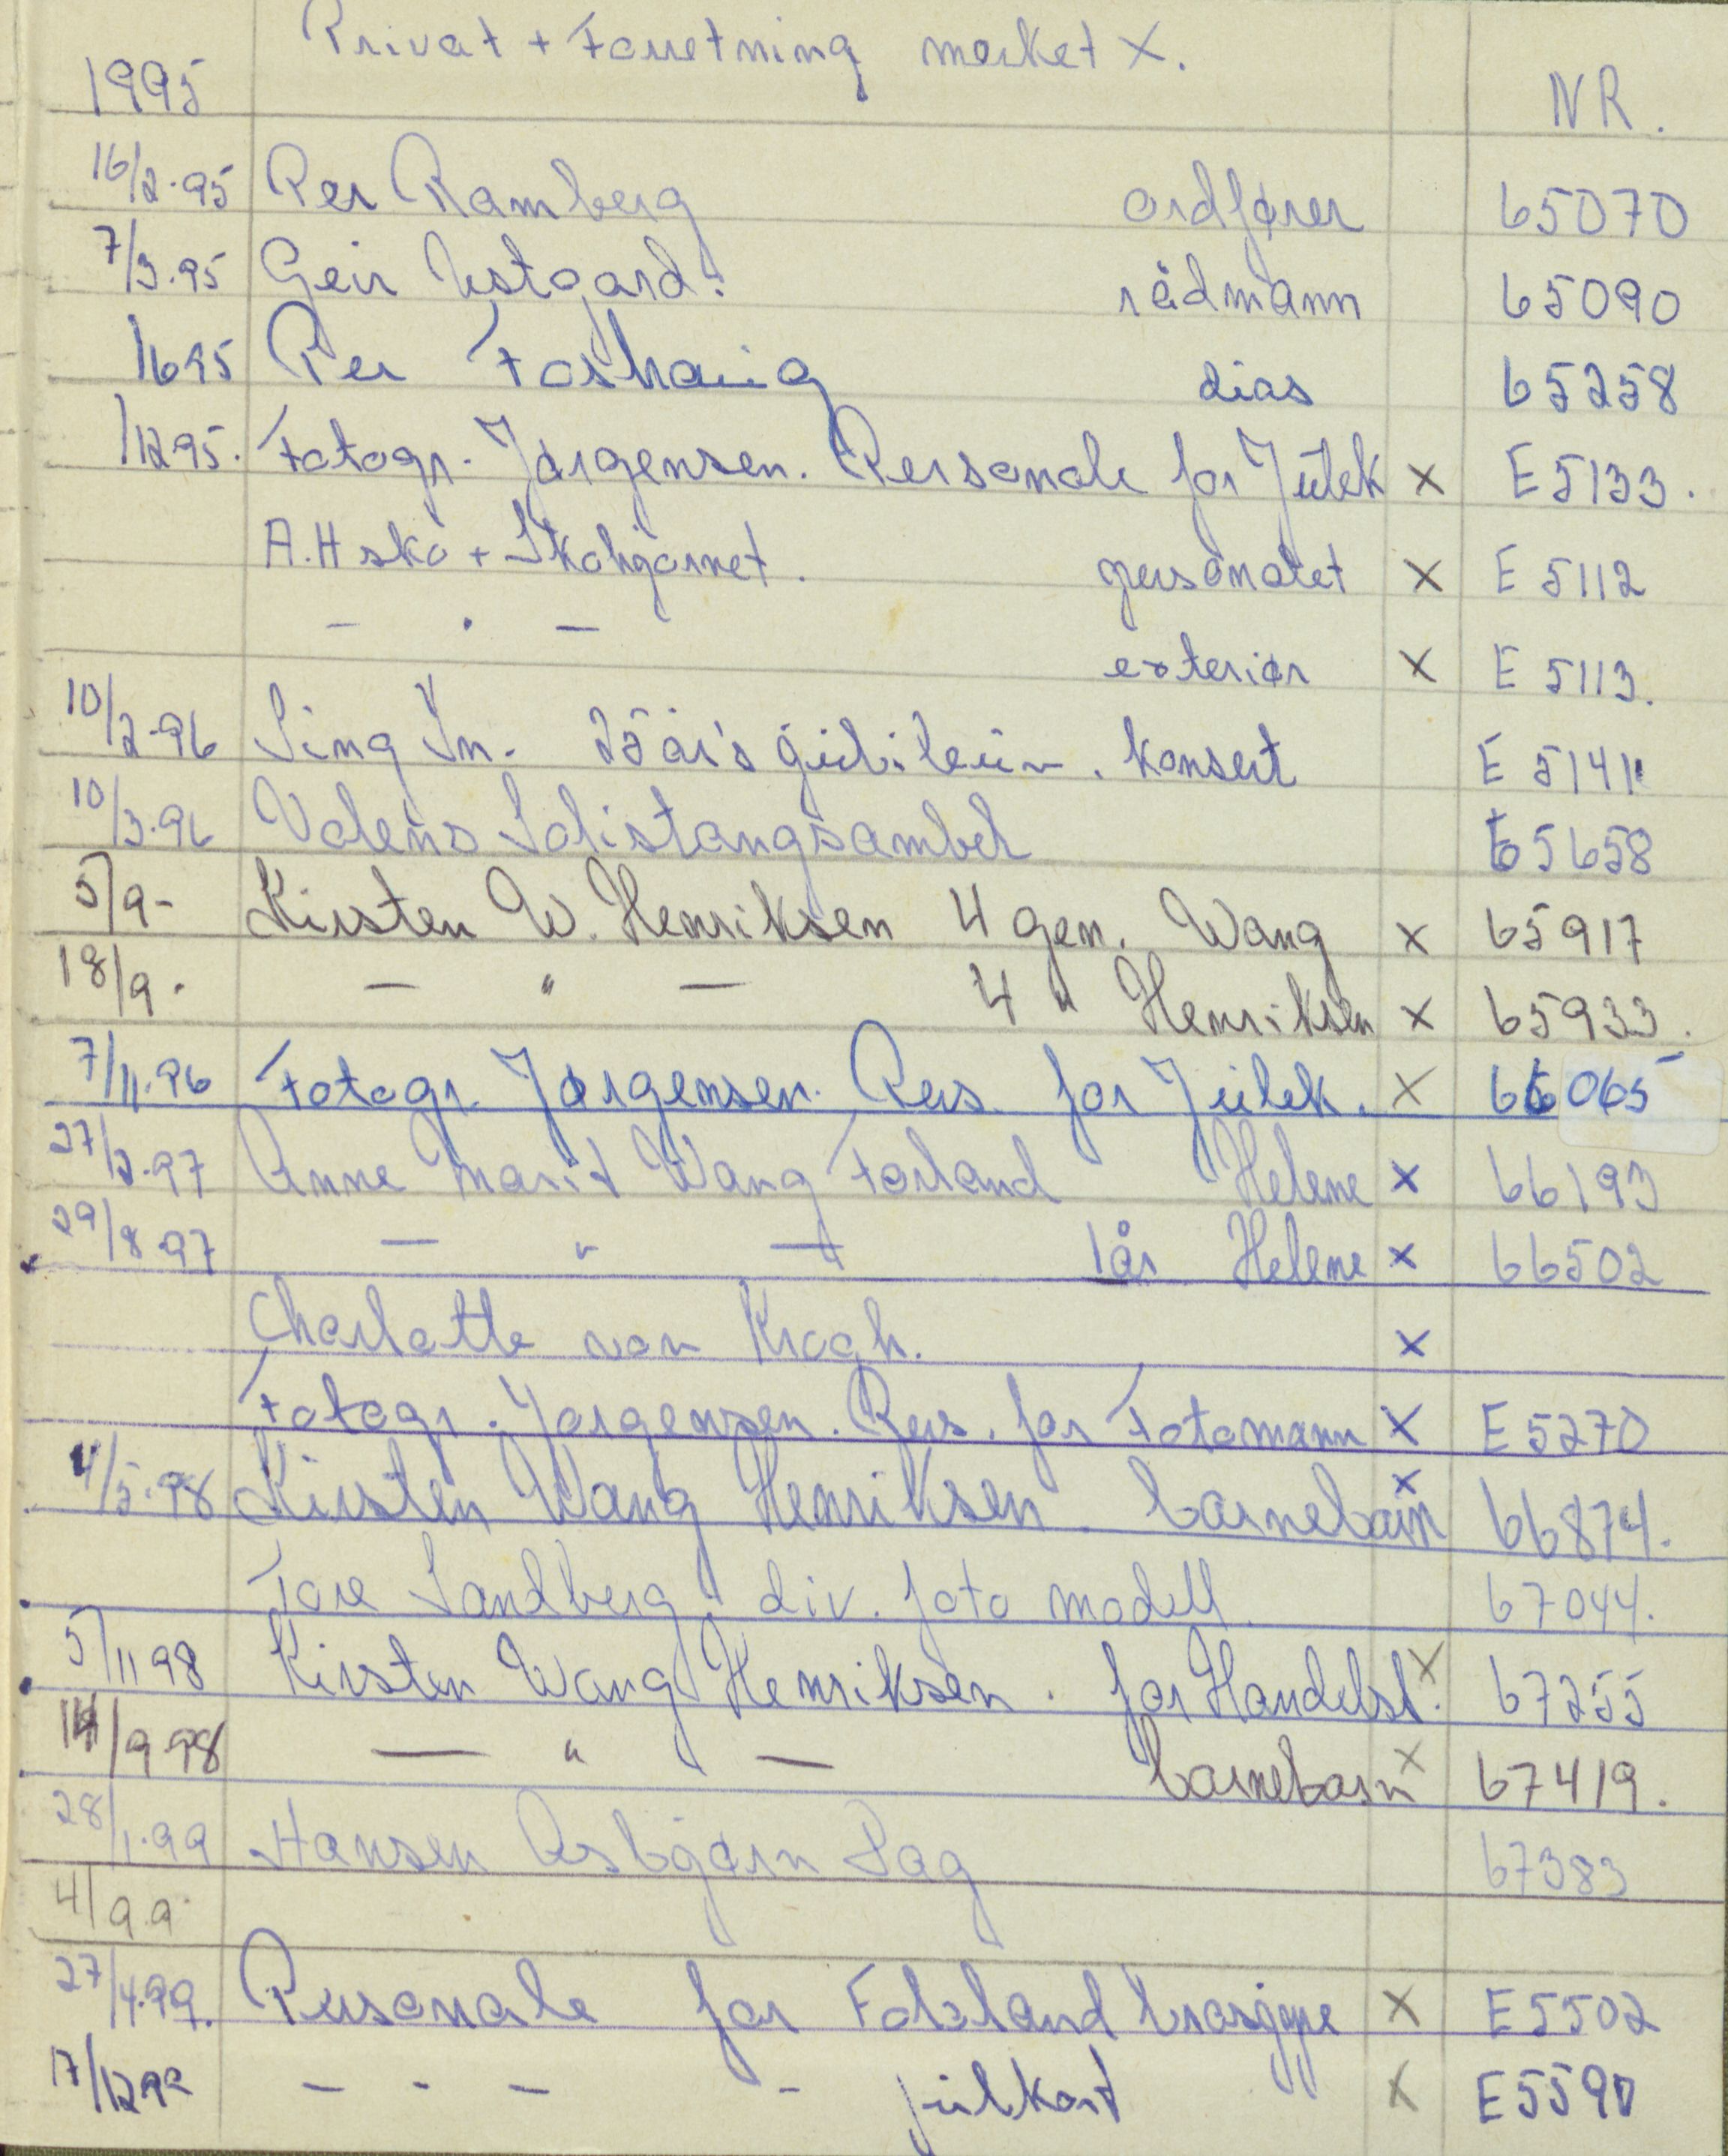 Privat + Forretning merket X.
1995 NR.
16/2.95 Per Ramberg ordfører 65070
7/3.95 Geir Ustgard. rådmann 65090
/6 95 Per Foshaug dias 65258
/12 95. Fotogr. Jørgensen. Personale for Julek X E 5133.
A.H sko + Skohjørnet. personalet X E 5112
- . - exteriør X E 5113.
10/2.96 Sing In. 25 år's jubileum. konsert E 5141
10/3.96 Valens Solistangsambel 65658
5/9- Kirsten W. Henriksen 4 gen. Wang X 65917
18/9. - " - 4 " Henriksen X 65933.
7/11.96 Fotogr. Jørgensen. Pers. for Julek. X 66065
27/2.97 Anne Marit Wang Forland Helene X 66193
29/8.97 - " - 1 år Helene X 66502
Charlotte von Krogh. X
Fotogr. Jørgensen. Pers. for Fotomann X E 5270
4/5.98 Kirsten Wang Henriksen. barnebarn X 66874.
Tore Sandberg, div. foto modell. 67044.
5/11 98 Kirsten Wang Henriksen. for Handelst. X 67255
14/9.98 - " - barnebarn X 67419.
28/1.99 Hansen Asbjørn Sag 67383
4/9.9
27/4.99. Personale for Fotoland brosjyre X E 5502
17/12 99 - - - - julkort X E 5590